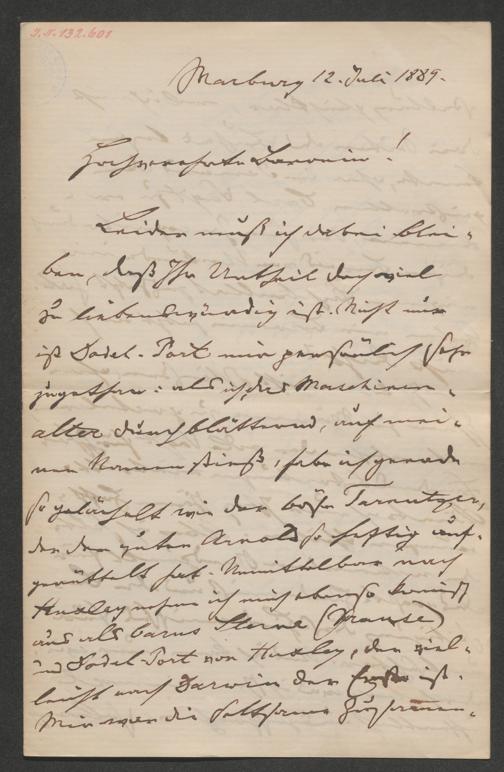 J.N. 132.601
Marburg 12. Juli 1889.
Hochverehrte Baronin!
Leider muß ich dabei blei-
ben, daß Ihr Urtheil doch viel
zu liebenswürdig ist. Nicht nur
ist Dodel-Port mir persönlich sehr
zugethan: als ich das Maschinen-
alter durchblätternd, auf mei-
nen Namen stieß, habe ich gerade
so gelächelt wie der böse
der den guten Arnold so heftig auf-
gerüttelt hat. Unmittelbar nach
Huxley nehme ich mich ebenso komisch
aus als Carus Sterne (Krause)
und Dodel-Port vor Huxley, der viel-
leicht nach Darwin der Erste ist.
Mir war die seltsame Zusammen-